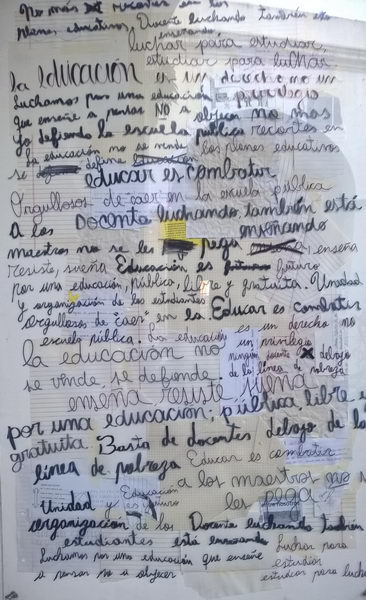 No más recortes en los
planes educativos Docente luchando también está
enseñando
luchar para estudiar,
estudiar para luchar
la educación es un derecho no un
Luchamos por una educación privilegio
que enseñe a pensar NO a obedecer no más
Yo defiendo la escuela pública recortes en
La educación no se vende los planes educativos
se defiende
educar es combatir
Orgullosos de caer en la escuela pública
Docente luchando, también está
A los enseñando
maestros no se les pega enseña
resiste, sueña Educación es futuro
por una educación, pública, libre y gratuita. Unidad
y organización de los estudiantes
Orgullosos de "caer" en la Educar es combatir
escuela pública. La educación es un derecho no
un privilegio
la educación no ningún docente debajo
de la línea de pobreza
se vende, se defiende
enseña resiste, sueña
por una educación, pública, libre y
gratuita Basta de docentes debajo de la
línea de pobreza Educar es combatir
a los maestros no se
les pega
Educación
Unidad y es futuro
organización de los Docente luchando también
estudiantes está enseñando
Luchamos por una educación que enseñe luchar para
estudiar
a pensar no a obedecer estudiar para luchar